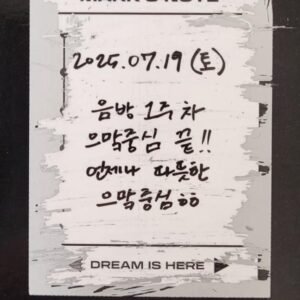 MARK'S NOTE
2025.07.19 (토)
음방 1주차
으막중심 끝!!
언제나 따뜻한
으막중심ㅎㅎ
DREAM IS HERE